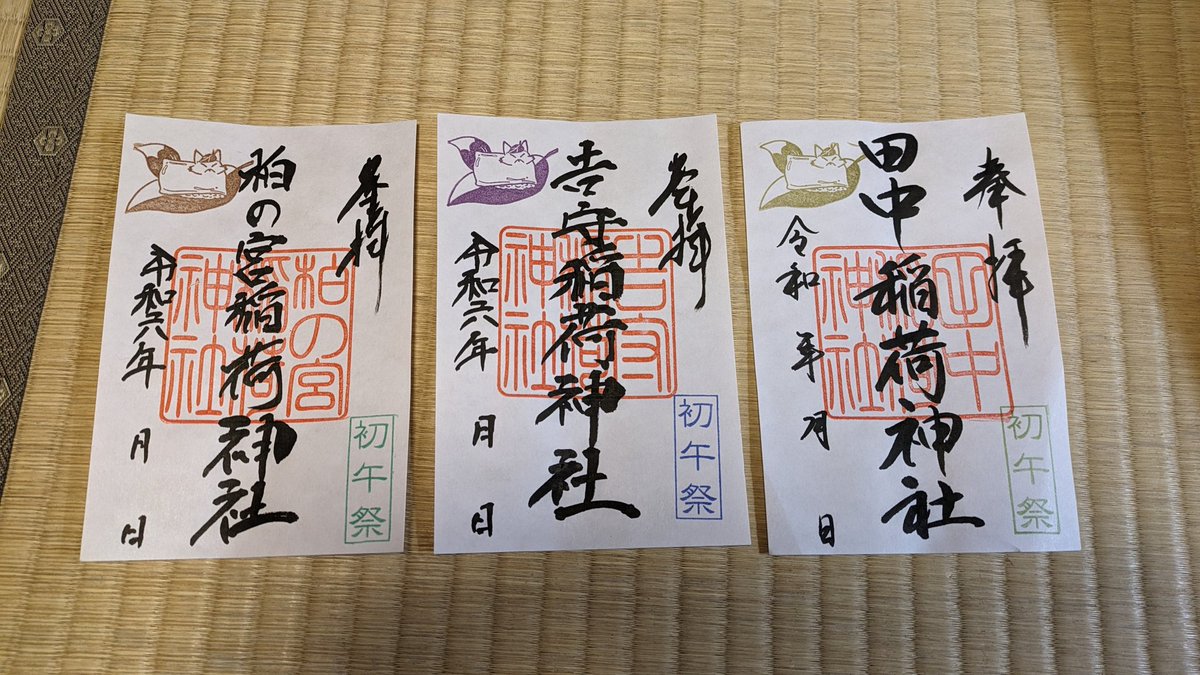 奉拝
柏の宮稲荷神社
令和六年 月 日
柏の宮
稲荷
神社
初午祭
奉拝
吉守稲荷神社
令和六年 月 日
吉守
稲荷
神社
初午祭
奉拝
田中稲荷神社
令和 年 月 日
田中
稲荷
神社
初午祭